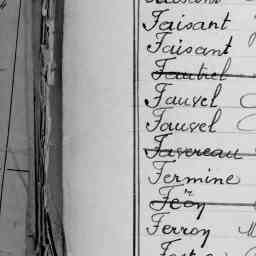 Faisant
Faisant
Fautrel
Fauvel
Fauvel
Favereau
Fermine
Féon
Ferron